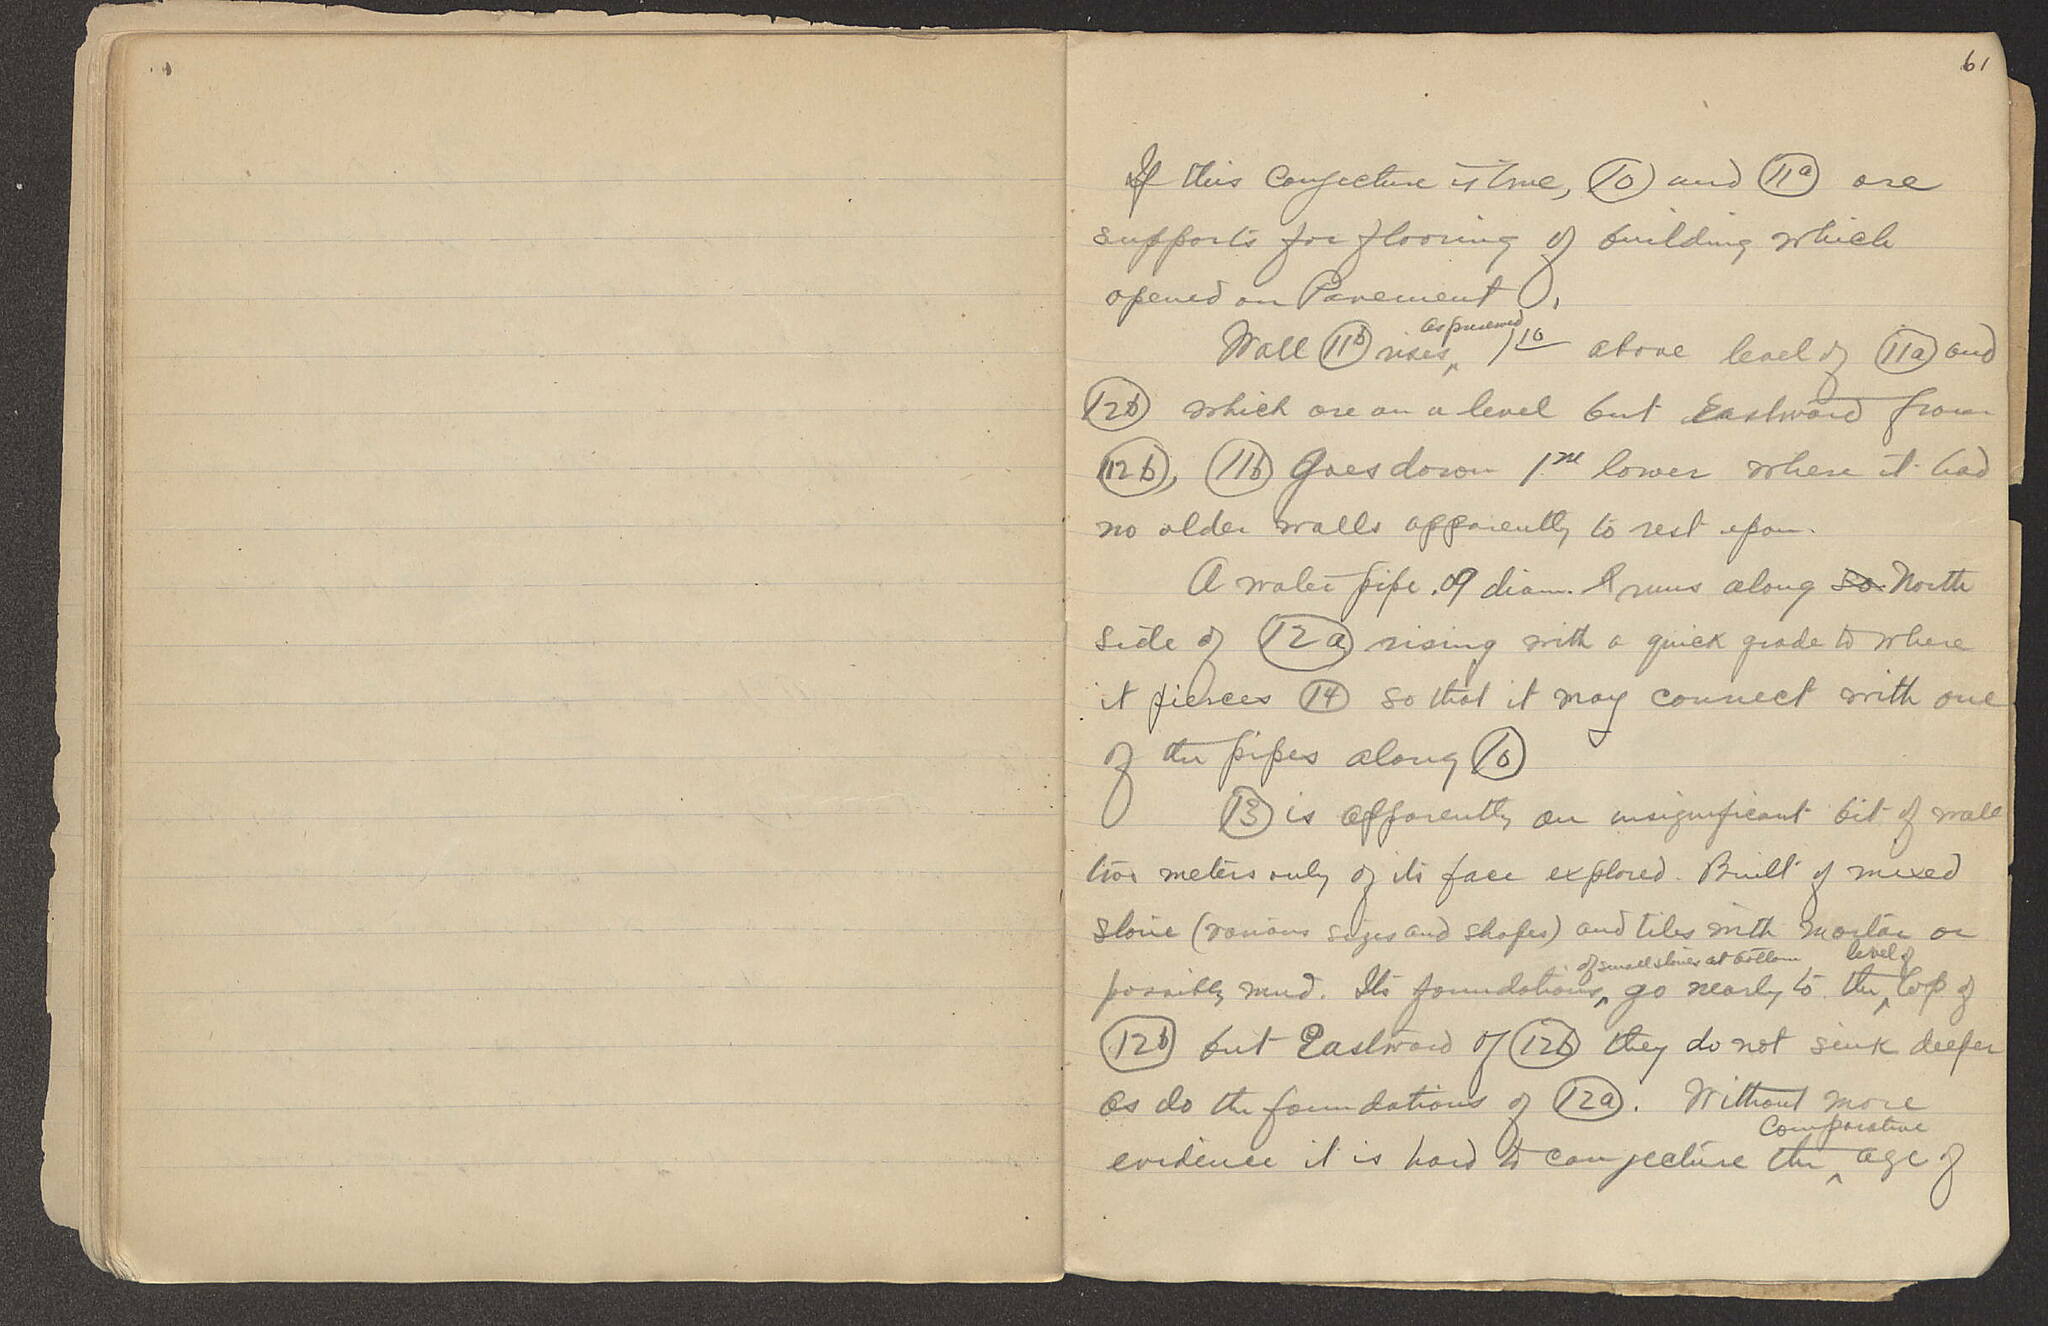 61
If this conjecture is true, 10 and 11a are
supports for flooring of building which
opened on Pavement
as preserved
Wall 11b rises, 1.10 above level of 11a and
12b which are on a level but Eastward from
12b, 11b goes down 1.m lower where it had
no older walls apparently to rest upon.
A water pipe .09 diam. runs along so. North
side of 12a rising with a quick grade to where
it pierces 14 so that it may connect with one
of the pipes along 10
13 is apparently an insignificant bit of wall
two meters only of its face explored. Built of mixed
stone (various sizes and shapes) and tiles with mortar or
of small stones at bottom level of
possibly mud. Its foundations go nearly to the top of
12b but Eastward of 12b they do not sink deeper
as do the foundations of 12a. Without more
comparative
evidence it is hard to conjecture the age of